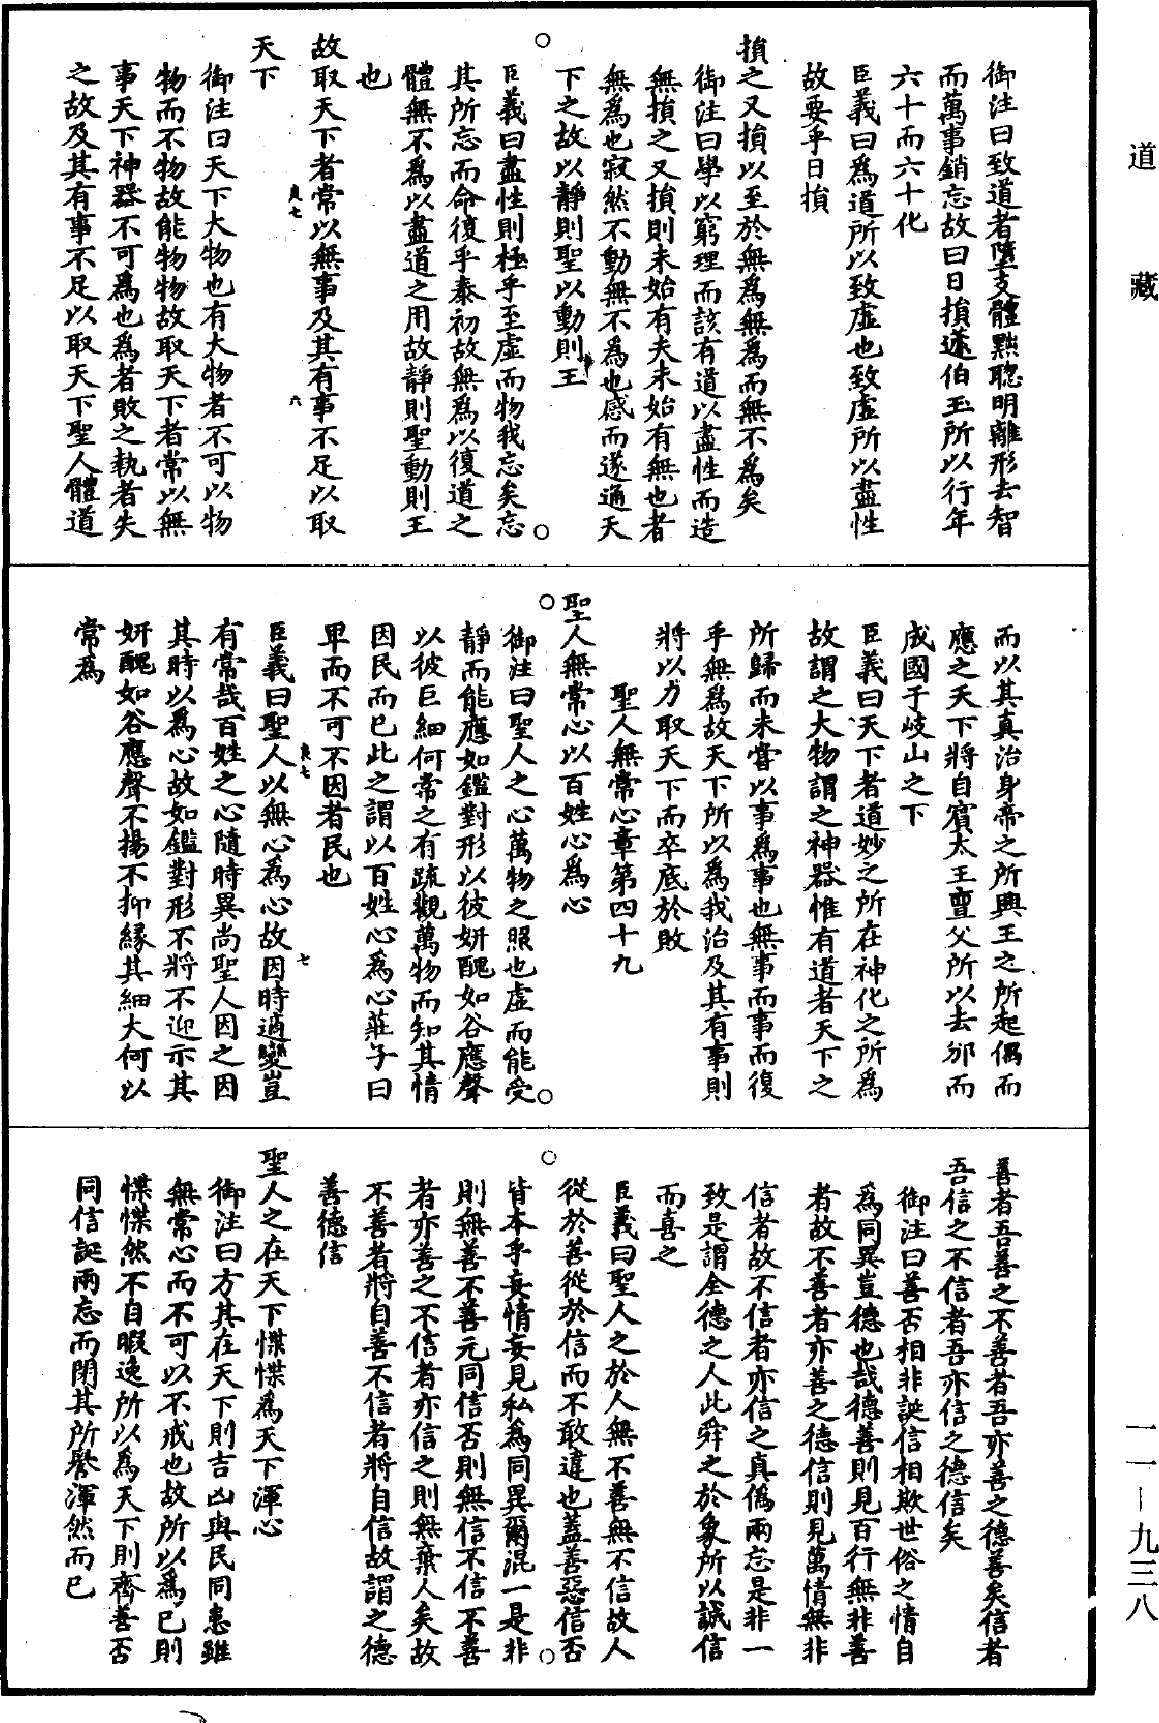 道藏
御注曰致道者墮支體黜聰明離形去智
而萬事銷忘故曰日損蘧伯玉所以行年
六十而六十化
臣義曰爲道所以致虛也致虛所以盡性
故要乎日損
損之又損以至於無爲無爲而無不爲矣
御注曰學以窮理而該有道以盡性而造
無損之又損則未始有夫未始有無也者
無爲也寂然不動無不爲也感而遂通天
下之故以靜則聖以動則王
臣義曰盡性則極乎至虛而物我忘矣忘
其所忘而命復乎泰初故無爲以復道之
體無不爲以盡道之用故靜則聖動則王
也
故取天下者常以無事及其有事不足以取
天下
御注曰天下大物也有大物者不可以物
物而不物故能物物故取天下者常以無
事天下神器不可爲也爲者敗之執者失
之故及其有事不足以取天下聖人體道
而以其真治身帝之所興王之所起偶而
應之天下將自賓太王亶父所以去邠而
成國于岐山之下
臣義曰天下者道妙之所在神化之所爲
故謂之大物謂之神器惟有道者天下之
所歸而未嘗以事爲事也無事而事而復
乎無爲故天下所以爲我治及其有事則
將以力取天下而卒底於敗
聖人無常心章第四十九
聖人無常心以百姓心爲心
御注曰聖人之心萬物之照也虛而能受
靜而能應如鑑對形以彼妍醜如谷應聲
以彼巨細何常之有疏觀萬物而知其情
因民而已此之謂以百姓心爲心莊子曰
卑而不可不因者民也
臣義曰聖人以無心爲心故因時適變豈
有常哉百姓之心隨時異尚聖人因之因
其時以爲心故如鑑對形不將不迎示其
妍醜如谷應聲不揚不抑緣其細大何以
常爲
善者吾善之不善者吾亦善之德善矣信者
吾信之不信者吾亦信之德信矣
御注曰善否相非誕信相欺世俗之情自
爲同異豈德也哉德善則見百行無非善
者故不善者亦善之德信則見萬情無非
信者故不信者亦信之真僞兩忘是非一
致是謂全德之人此舜之於象所以誠信
而喜之
臣義曰聖人之於人無不善無不信故人
從於善從於信而不敢違也蓋善惡信否
皆本乎妄情妄見私爲同異爾混一是非
則無善不善元同信否則無信不信不善
者亦善之不信者亦信之則無棄人矣故
不善者將自善不信者將自信故謂之德
善德信
聖人之在天下惵惵爲天下渾心
御注曰方其在天下則吉凶與民同患雖
無常心而不可以不戒也故所以爲己則
惵惵然不自暇逸所以爲天下則齊善否
同信誕兩忘而閉其所譽渾然而已
一一—九三八